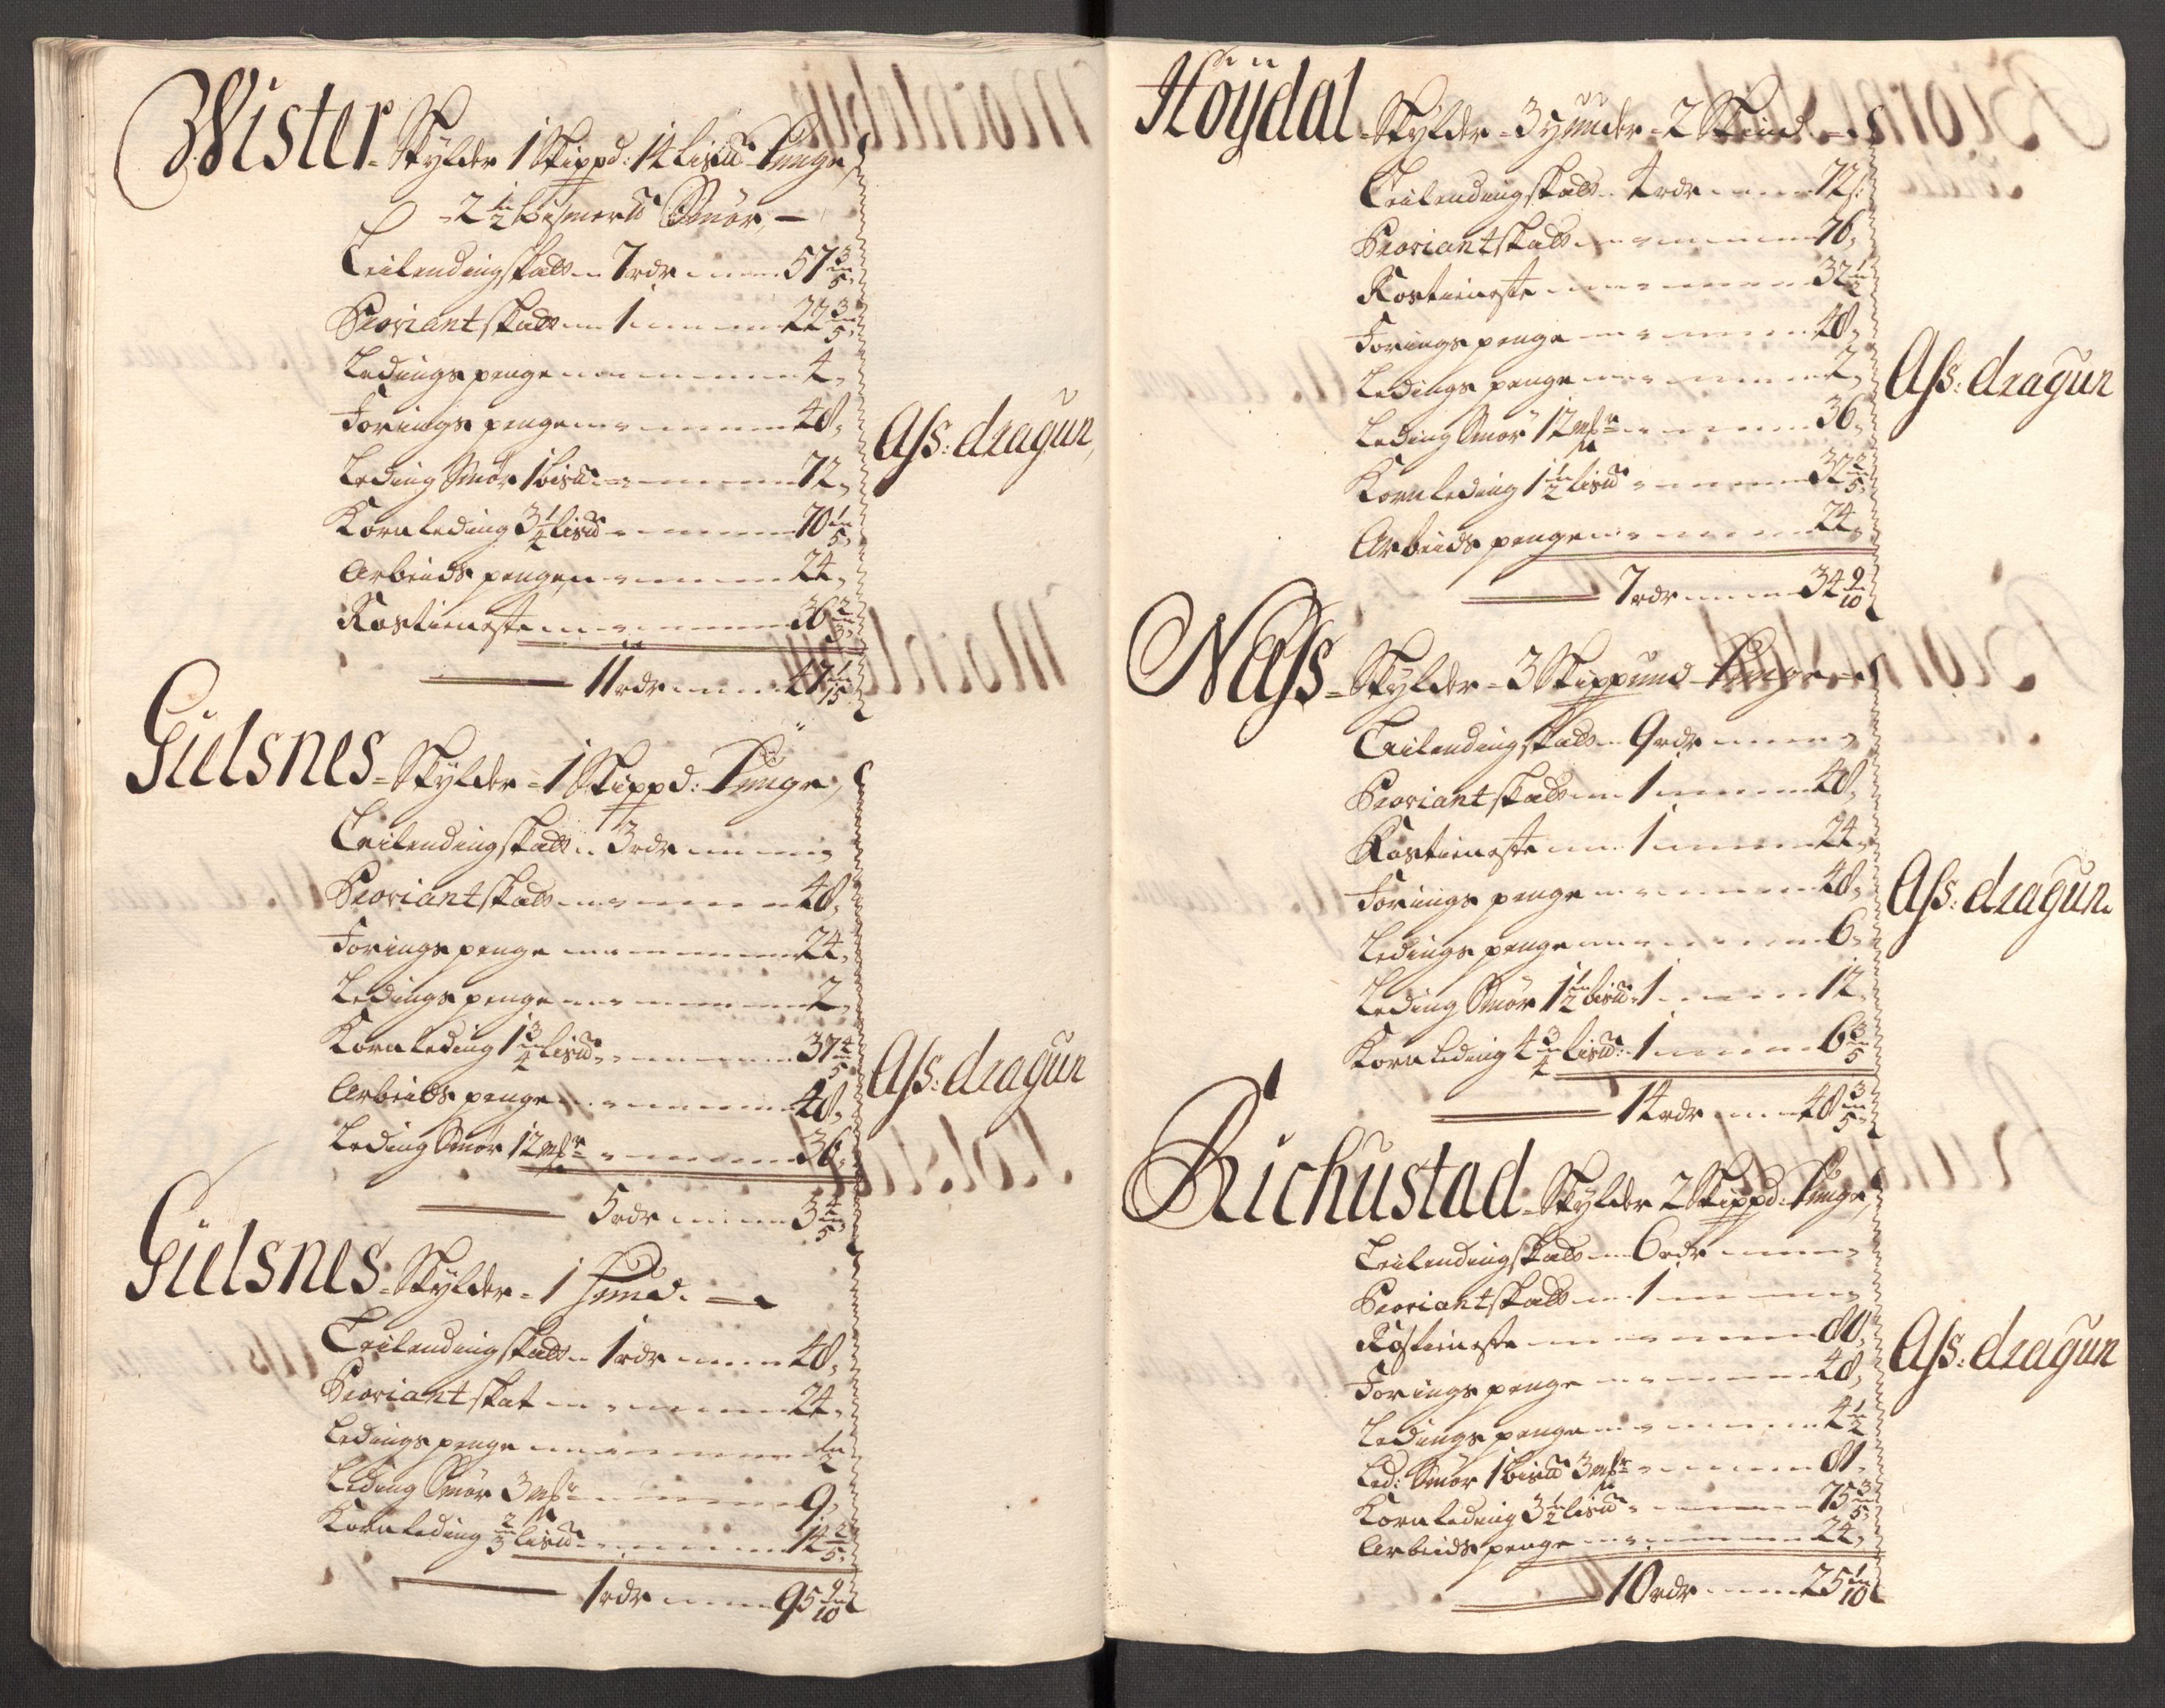 Wister Skylder 1 Skippd: 14 Lis℔ Tunge
2 1/2 Bismer℔ Smör
Leilendingskatt 7 rdr 57 3/5
Proviantskatt 1 22 3/5
Ledings penge 4
Forings penge 48
Leding Smör 1 bis℔ 72
Korn leding 3 1/4 lis℔ 70 1/5
Arbeids penge 24
Rostieneste 36 2/3
11 rdr 47 1/15
Ass: dragun
Gielsnes Skylder 1 Skippd: Tunge
Leilendingskatt 3 rdr
Proviantskatt 48
Forings penge 24
Ledings penge 2
Korn leding 1 3/4 lis℔ 37 4/5
Arbeids penge 48
Leding Smör 12 mkr 36
5 rdr 3 4/5
Ass: dragun
Gielsnes Skylder 1 Hund
Leilendingskatt 1 rdr 48
Proviantskat 24
Ledings penge 1/2
Leding Smör 3 mkr 9
Korn leding 2/3 lis℔ 14 2/5
1 rdr 95 9/10
Höÿdal Skylder 3 Hunder 2 Skind
Leilendingskatt 4 rdr 72 s:
Proviantskatt 76
Rostieneste 32 1/2
Forings penge 48
Ledings penge 2
Leding Smör 12 mkr 36
Korn leding 1 1/2 lis℔ 32 2/5
Arbeids penge 24
7 rdr 34 9/10
Ass: dragun
Næss Skylder 3 Skippund Tunge
Leilendingskatt 9 rdr
Proviantskatt 1 48
Rostieneste 1 24
Forings penge 48
Ledings penge 6
Leding Smör 1 1/2 bis℔ 1 12
Korn leding 4 3/4 lis℔ 1 6 3/5
14 rdr 48 3/5
Ass: dragun
Richustad Skylder 2 Skippd: Tunge
Leilendingskatt 6 rdr
Proviantskatt 1
Rostieneste 80
Forings penge 48
Ledings penge 4 1/2
Led: Smör 1 bis℔ 3 mkr 81
Korn leding 3 1/2 lis℔ 75 3/5
Arbeids penge 24
10 rdr 25 1/10
Ass: dragun